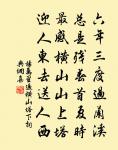 六年三度過蘭溪
總是殘春首夏時
最感橫山山上塔
迎人東去送人西
楊萬里過橫山塔下